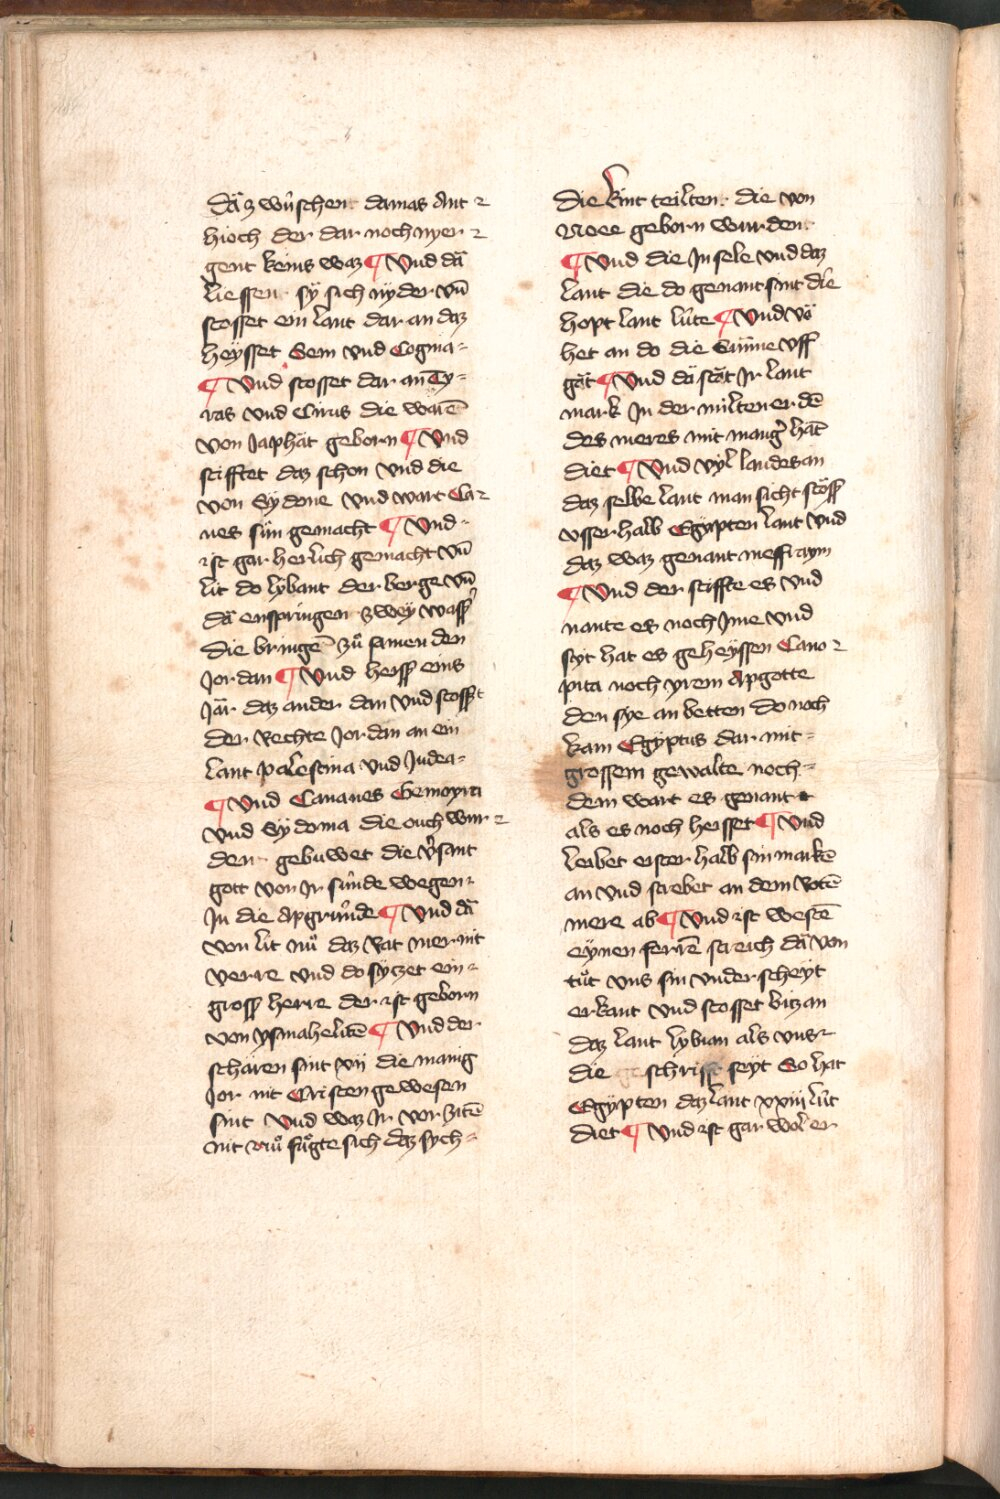 däz wuͤschen damas Ant⸗
hioch der dar noch nyer⸗
gent keins waz ¶ Vnd dā
liessen sÿ sich nÿder vn̄
stosset ein lant dar an daz
heÿsset Sem vnd Cogma⸗
¶ Vnd stosset dar an Ty⸗
ras vnd Cirus die warē
von Japhät geborn ¶ Vnd
stifftet daz schon vnd die
von Sydone vnd wart Ca⸗
nes sün gemacht ¶ Vnd⸗
ist gar herlich gemacht vn̄
lit do lybant der berge vn̄
dā enspringen zweÿ wass̉
die bringē zuͦ samen den
Jordan ¶ Vnd heiss eins
Jär daz ander dan vnd stosst
der Rechte Jordan an ein
lant palestina vnd Judea⸗
¶ Vnd Cananes Gemoyra
vnd Sydoma die ouch wur⸗
den gebuwet die v̉sant
gott von Jr suͤnde wegen⸗
Jn die Apgruͤnde ¶ Vnd dā
von lit nuͦ daz Rat mer nit
verre vnd do sÿtzet ein⸗
gross herre der ist geborn
von ysmahelitē ¶ Vnd der
schären sint vij die manig
Jor nit Cristen gewesen
sint Vnd waz Jr vor zitē
nit nuͦ fuͤgte sich daz sych⸗
die kint teilten die von
Noee geborn wurden
¶ Vnd die Jnsele vnd daz
lant die do genant sint die
hopt lant luͤte ¶ Vnd vō
het an do die Sūnne vff
gāt ¶ Vnd dā stāt Jr lant
mark Jn der milten erdē
des meres mit mang̉ hāt
diet ¶ Vnd vyl landes an
daz selbe lant man sicht stöss
vsserhalb Egypten lant vnd
daz waz genant messraym
¶ Vnd der stiffte es vnd
nante es noch Jme vnd
syt hat es geheÿssen Cano⸗
pita noch yrem Apgotte
den sye an betten do noch
kam Egÿptus dar mit⸗
grossem gewalte noch⸗
dem wart es genant
als es noch heisset ¶ Vnd
leibet eister halb sin markē
an vnd strebet an dem Rotē
mere ab ¶ Vnd ist westē
eÿnen ferrē streich dā von
tuͦt vns sin vnderscheyt
erkant vnd stosset bitz an
daz lant lybian als vns
die geschrift seyt So hat
Egÿpten daz lant xxiiij luͤt
diet ¶ Vnd ist gar wol er